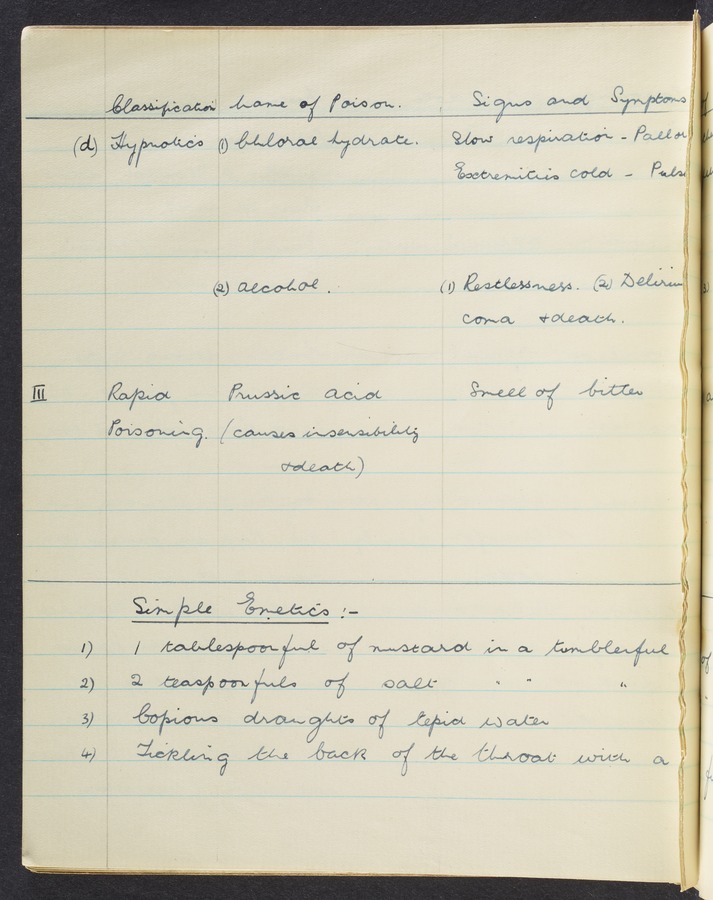 Classification Name of Poison. Signs and Symptoms
(d) Hypnotics (1) Chloral hydrate. Slow respiration - Pallor
Extremities cold - Pulse
(2) alcohol. (1) Restlessness. (2) Delirium
coma & death.
III Rapid Prussic acid Smell of bitter
Poisoning. (causes insensibility
& death)
Simple Emetics :-
1) 1 tablespoonful of mustard in a tumblerful
2) 2 teaspoonfuls of salt " " "
3) Copious draughts of tepid water
4) Tickling the back of the throat with a